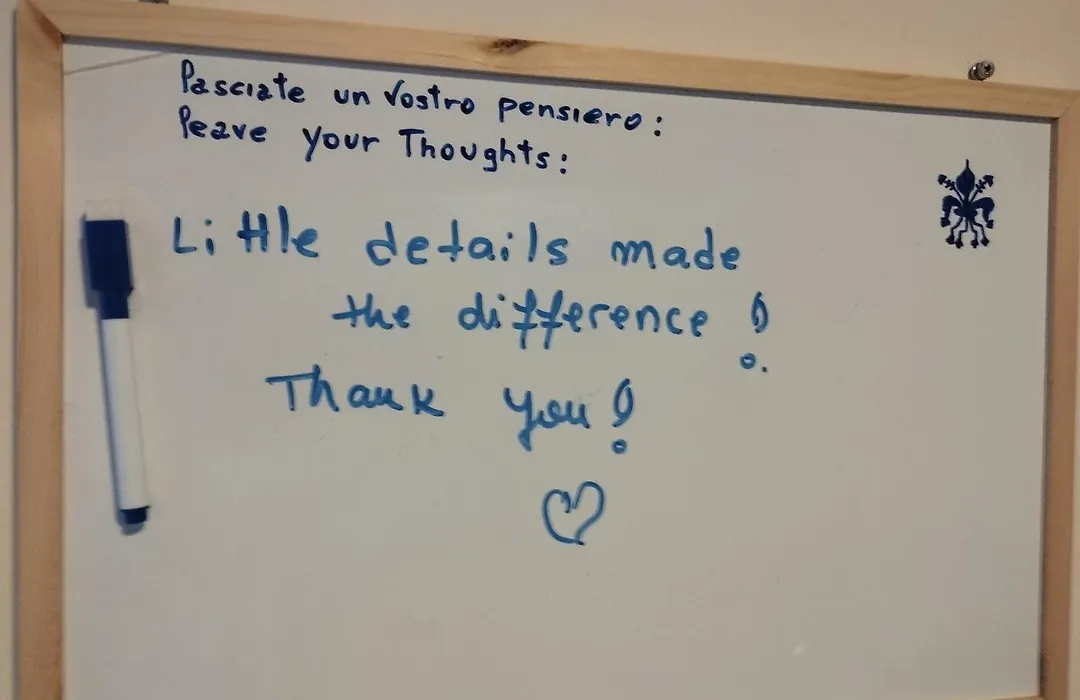 Lasciate un Vostro pensiero:
Leave your Thoughts:
Little details made
the difference!
Thank you!